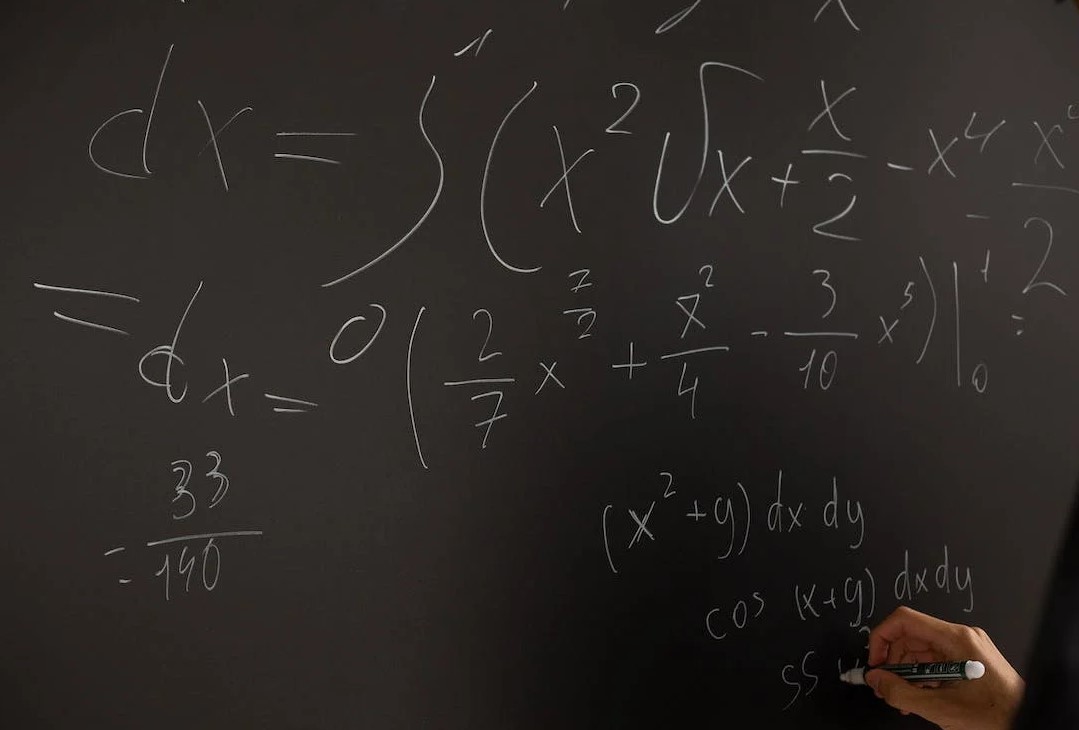 dx = ∫₀¹ (x²√x + x/2 - x⁴ - x⁴/2
= dx = (2/7 x^(7/2) + x²/4 - 3/10 x⁵)|₀¹ =
= 33/140
(x²+y) dx dy
cos (x+y) dxdy